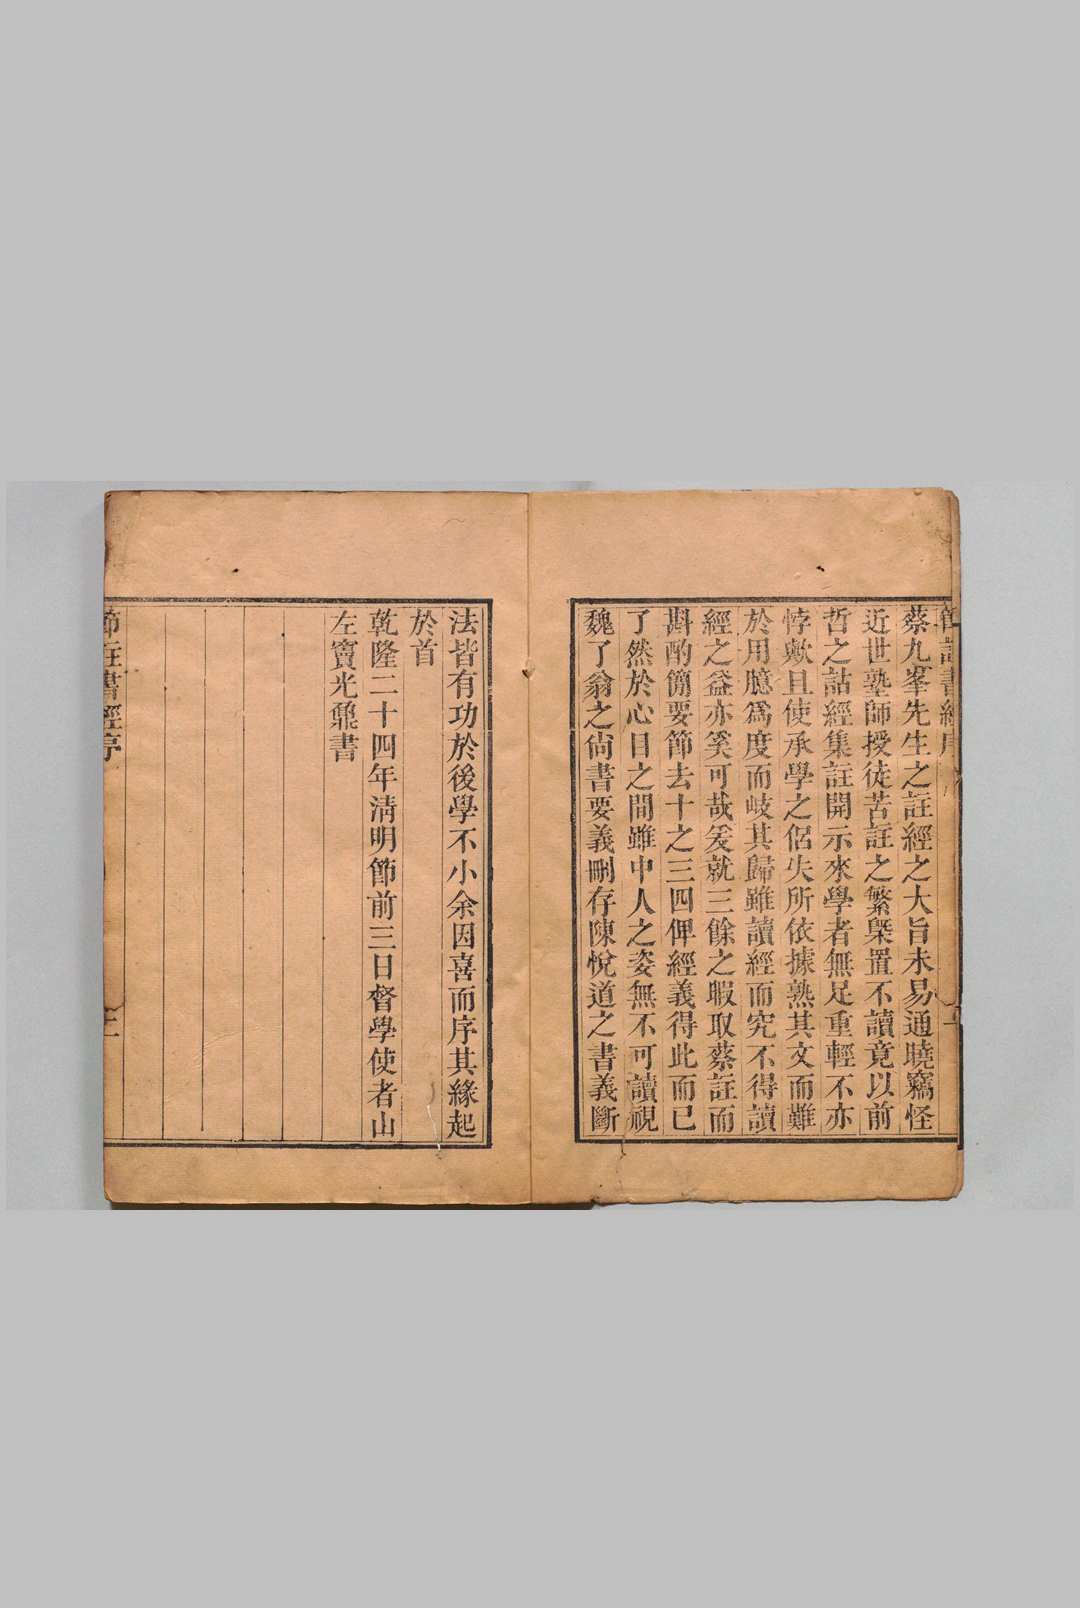 節註書經序
蔡九峯先生之註經之大旨未易通曉竊怪
近世塾師授徒苦註之繁槩置不讀竟以前
哲之詁經集註開示來學者無足重輕不亦
悖歟且使承學之侶失所依據熟其文而難
於用臆爲度而岐其歸雖讀經而究不得讀
經之益亦奚可哉爰就三餘之暇取蔡註而
斟酌簡要節去十之三四俾經義得此而已
了然於心目之間雖中人之姿無不可讀視
魏了翁之尚書要義刪存陳悅道之書義斷
法皆有功於後學不小余因喜而序其緣起
於首
乾隆二十四年淸明節前三日督學使者山
左竇光鼐書
節註書經序
二